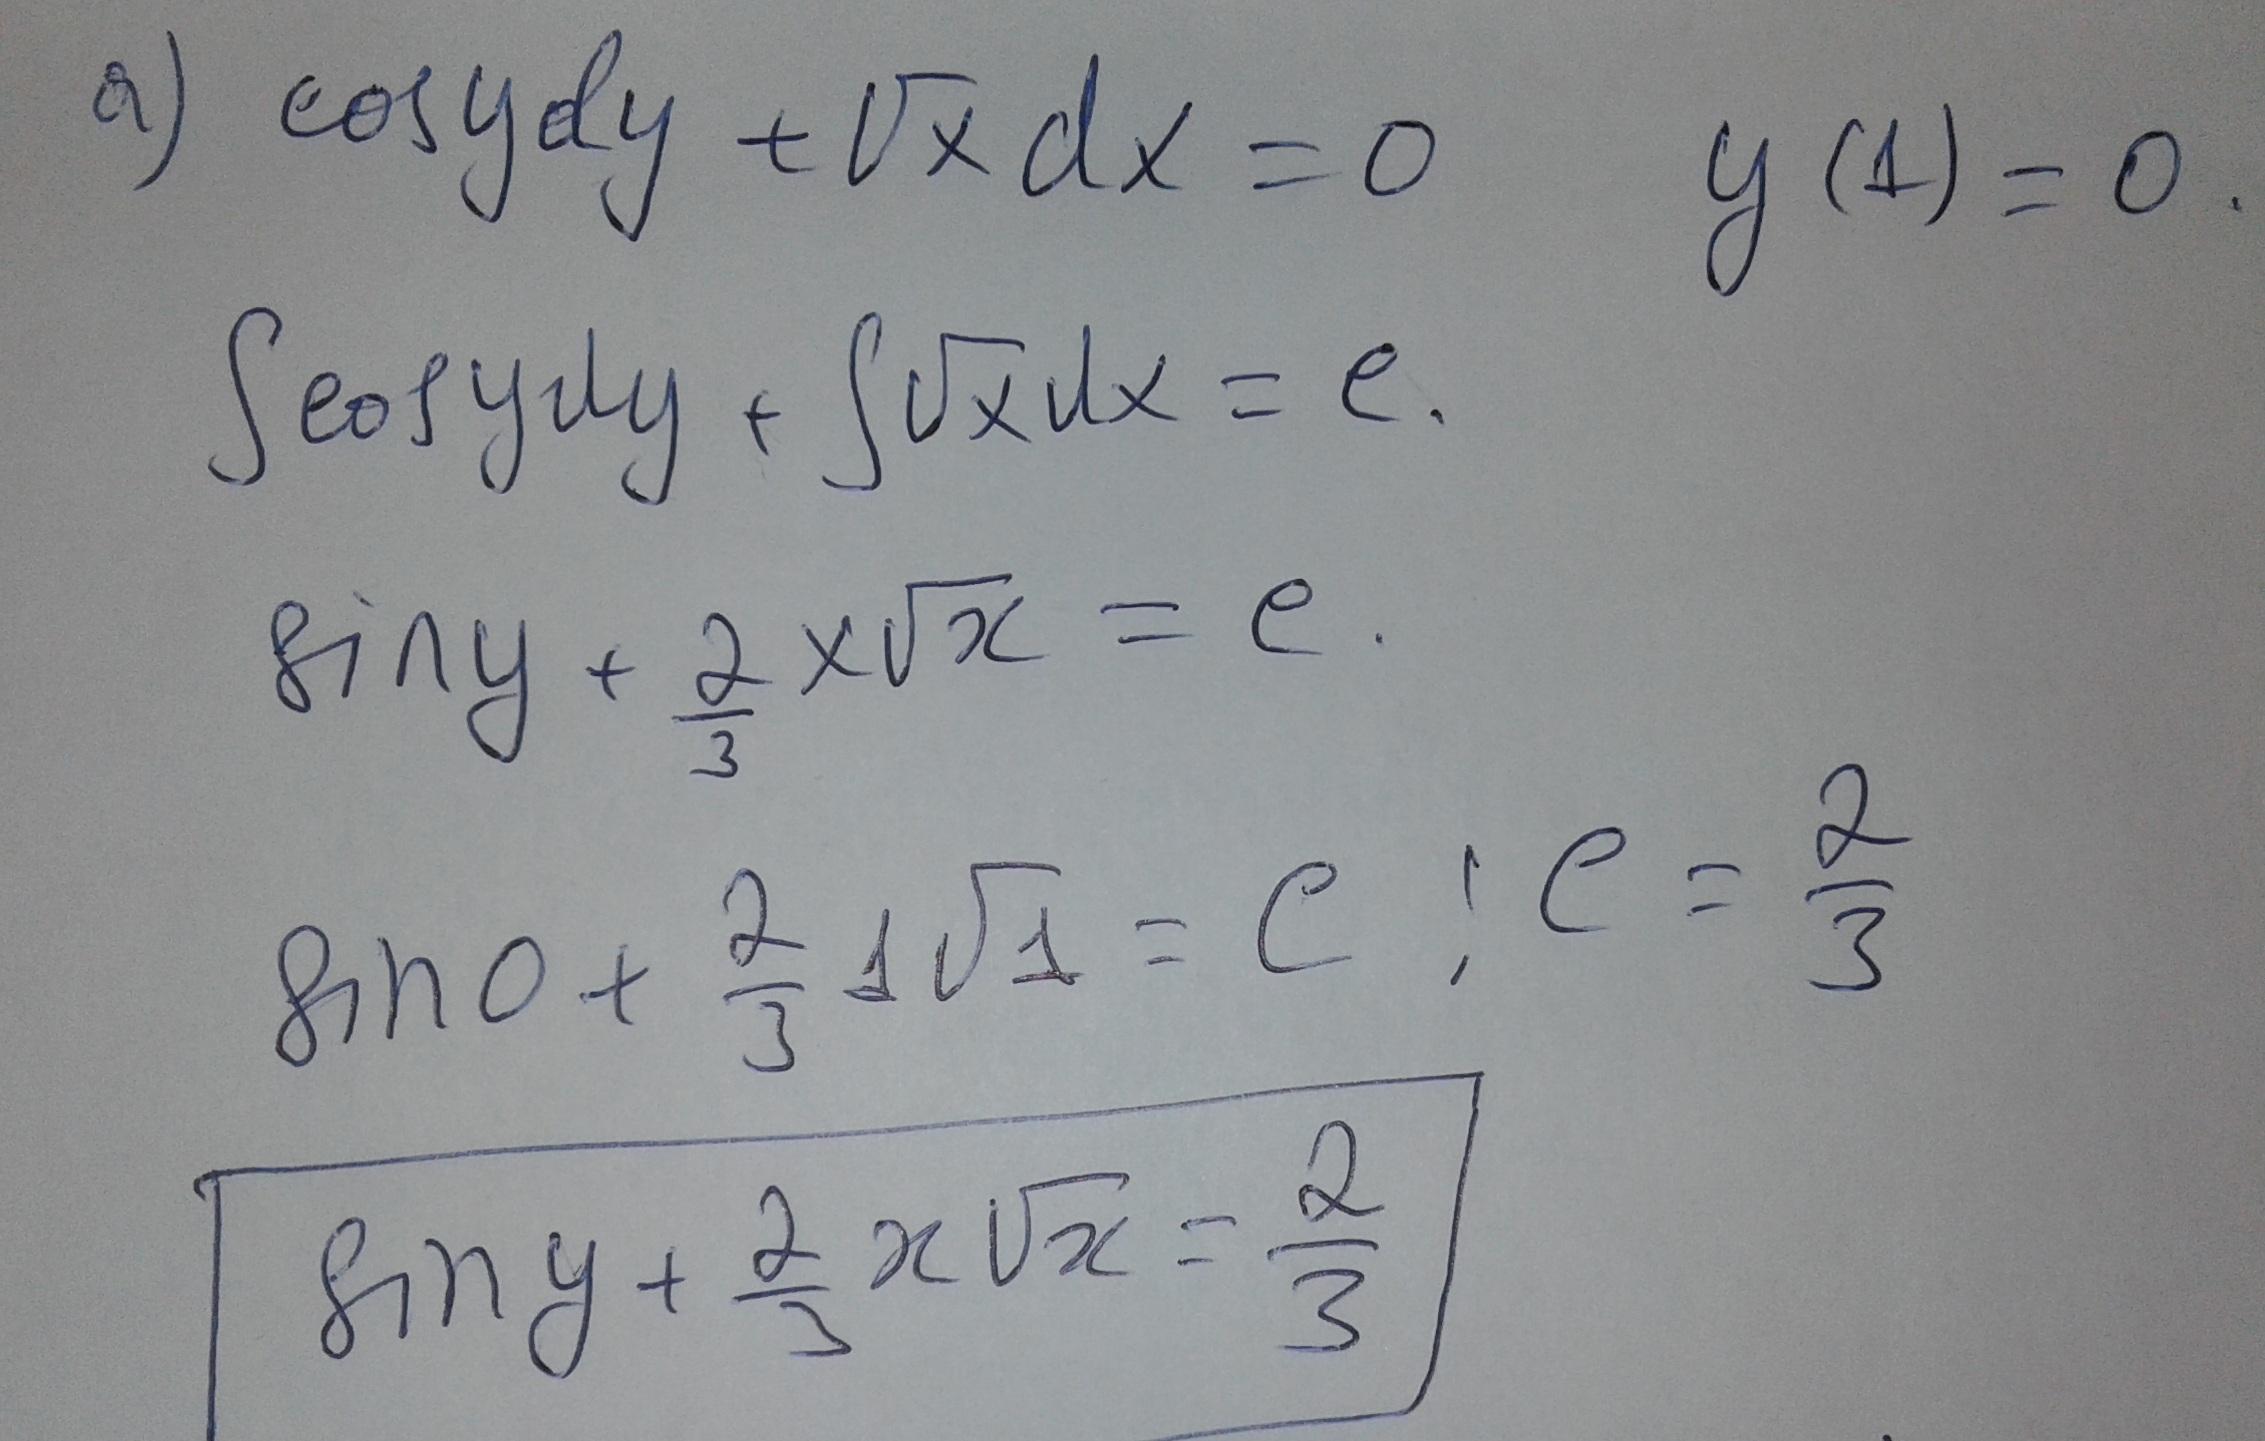 a) cos y dy + √x dx = 0 y(1) = 0.
∫cos y dy + ∫√x dx = c.
sin y + 2/3 x√x = c.
sin 0 + 2/3 1√1 = C ; C = 2/3
sin y + 2/3 x√x = 2/3